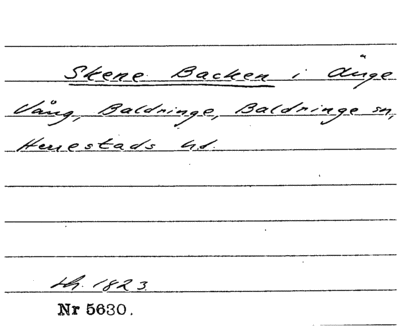 Skene Backen i Änge
Vång, Baldringe, Baldringe sn,
Herrestads hd.
sk. 1823
Nr 5630.